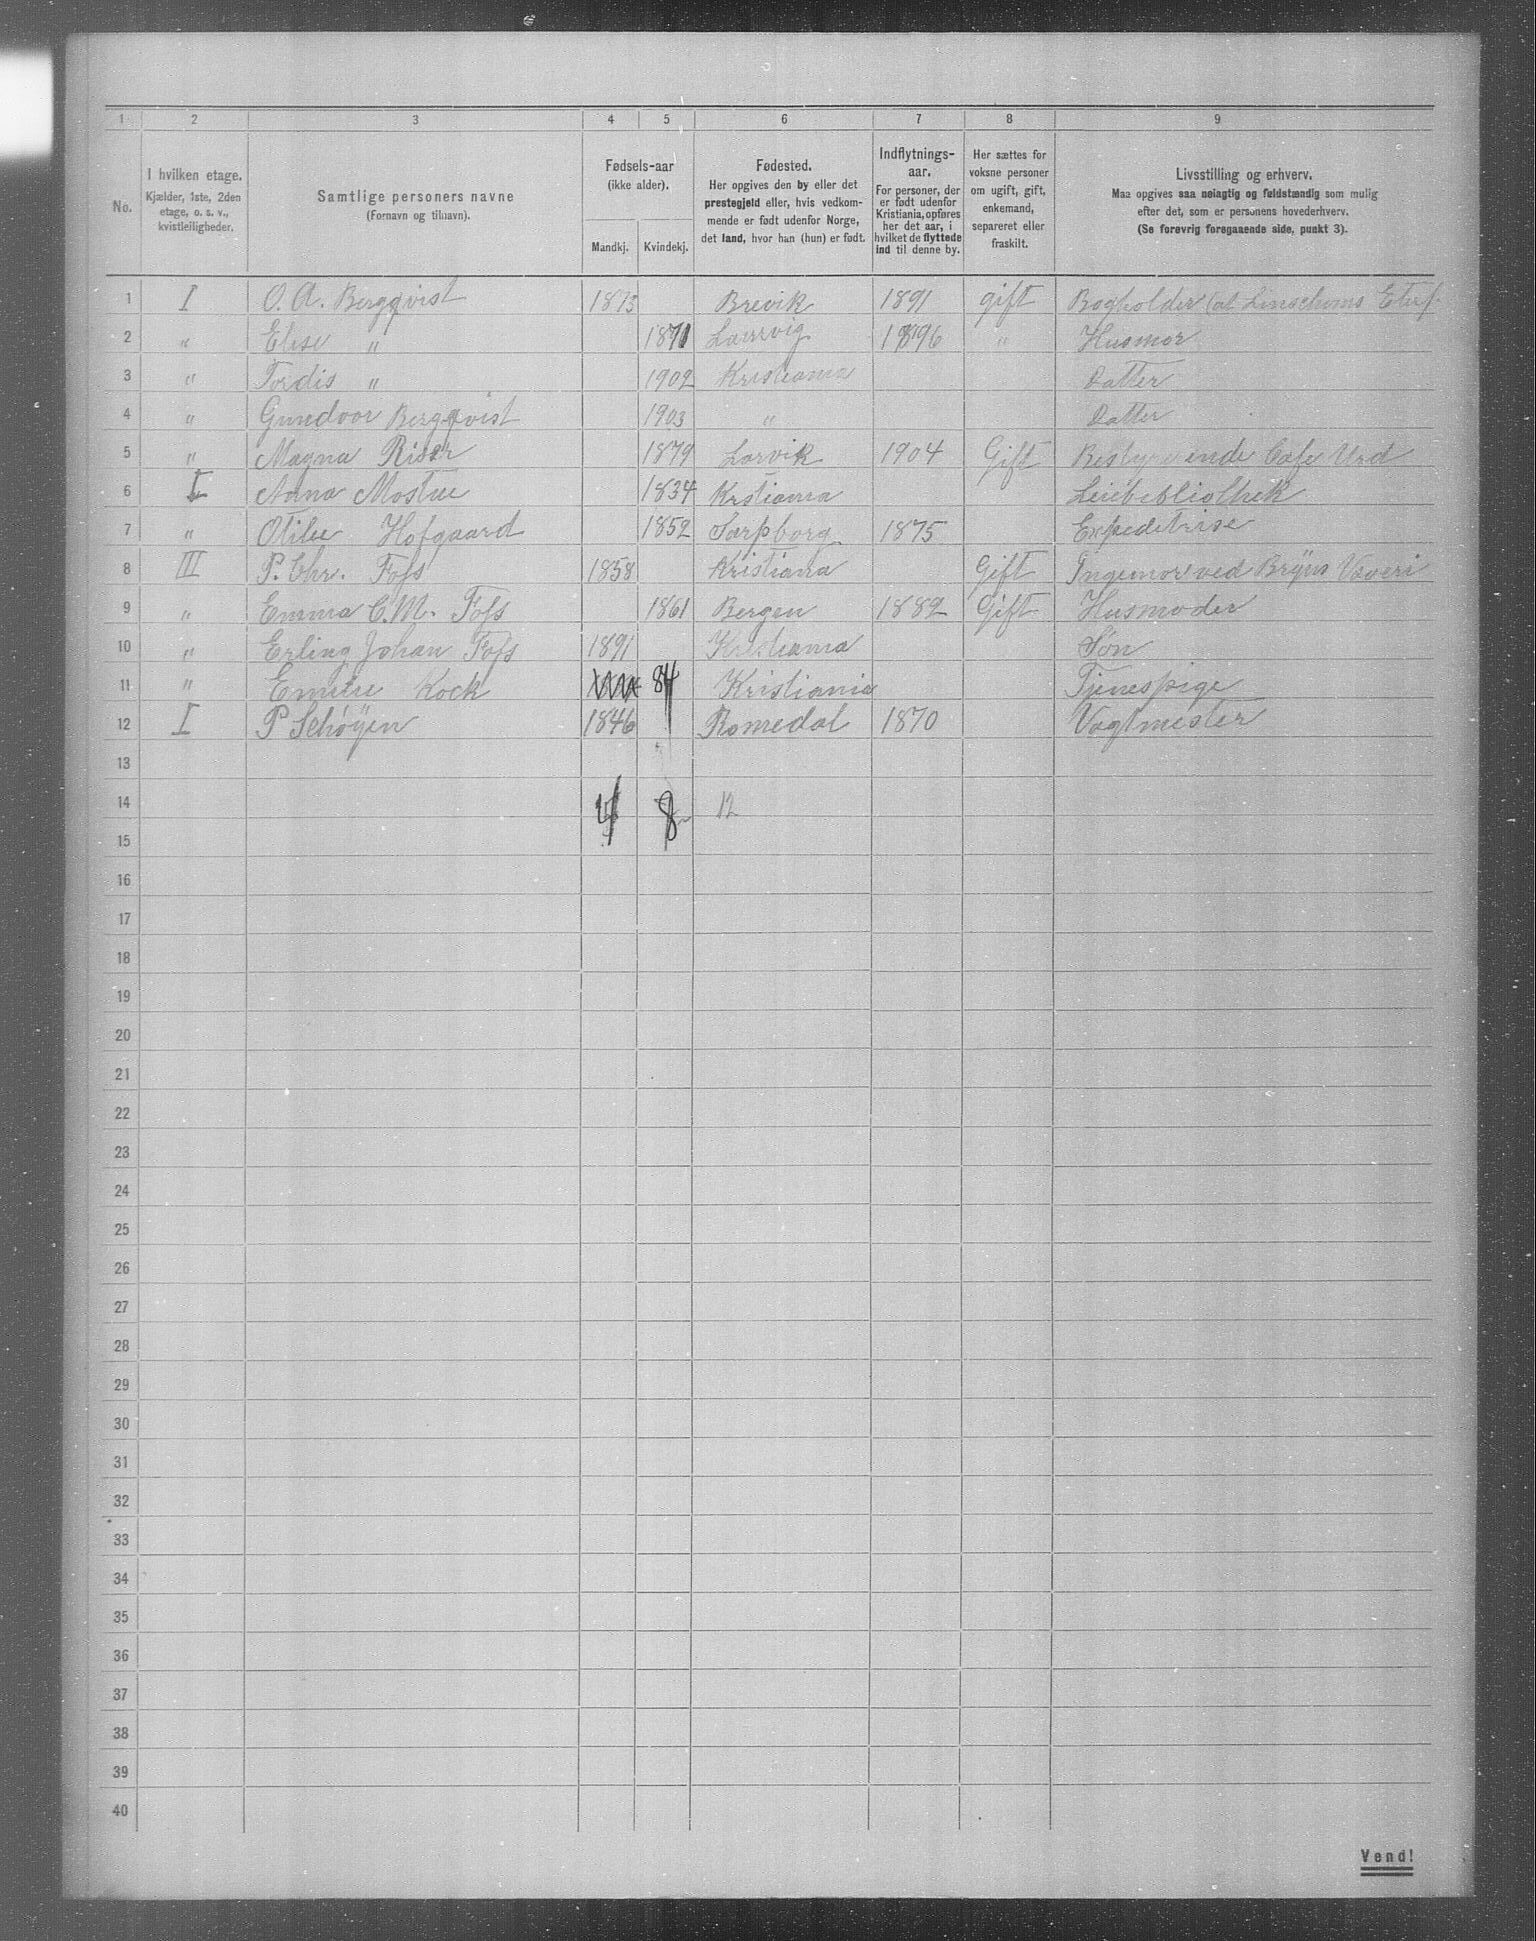 1 2 3 4 5 6 7 8 9
No.
I hvilken etage.
Kjælder, 1ste, 2den
etage, o. s. v.,
kvistleiligheder.
Samtlige personers navne
(Fornavn og tilnavn).
Fødsels-aar
(ikke alder).
Mandkj. Kvindekj.
Fødested.
Her opgives den by eller det
prestegjeld eller, hvis vedkom-
mende er født udenfor Norge,
det land, hvor han (hun) er født.
Indflytnings-
aar.
For personer, der
er født udenfor
Kristiania, opføres
her det aar, i
hvilket de flyttede
ind til denne by.
Her sættes for
voksne personer
om ugift, gift,
enkemand,
separeret eller
fraskilt.
Livsstilling og erhverv.
Maa opgives saa nøiagtig og fuldstændig som mulig
efter det, som er personens hovederhverv.
(Se forøvrig foregaaende side, punkt 3).
1 I O. A. Bergqvist 1873 Brevik 1891 gift Bogholder
2 " Elise " 1871 Laurvig 1896 " Husmor
3 " Tordis " 1902 Kristiania Datter
4 " Gundvor Bergqvist 1903 " Datter
5 " Magna Riser 1879 Larvik 1904 Gift Bestyrerinde Cafe Urd
6 I Anna Mostue 1834 Krstiania Leiebibliothek
7 " Otilie Hofgaard 1852 Sarpborg 1875 Expeditrise
8 III P. Chr. Foss 1858 Kristiania Gift Ingeniør ved Bryns Væveri
9 " Emma C. M. Foss 1861 Bergen 1882 Gift Husmoder
10 " Erling Johan Foss 1891 Kristiania Søn
11 " Emilie Kock 84 Kristiania Tjenespige
12 I P Schøyen 1846 Romedal 1870 Vagtmester
13
14 4 8 12
15
16
17
18
19
20
21
22
23
24
25
26
27
28
29
30
31
32
33
34
35
36
37
38
39
40
Vend!